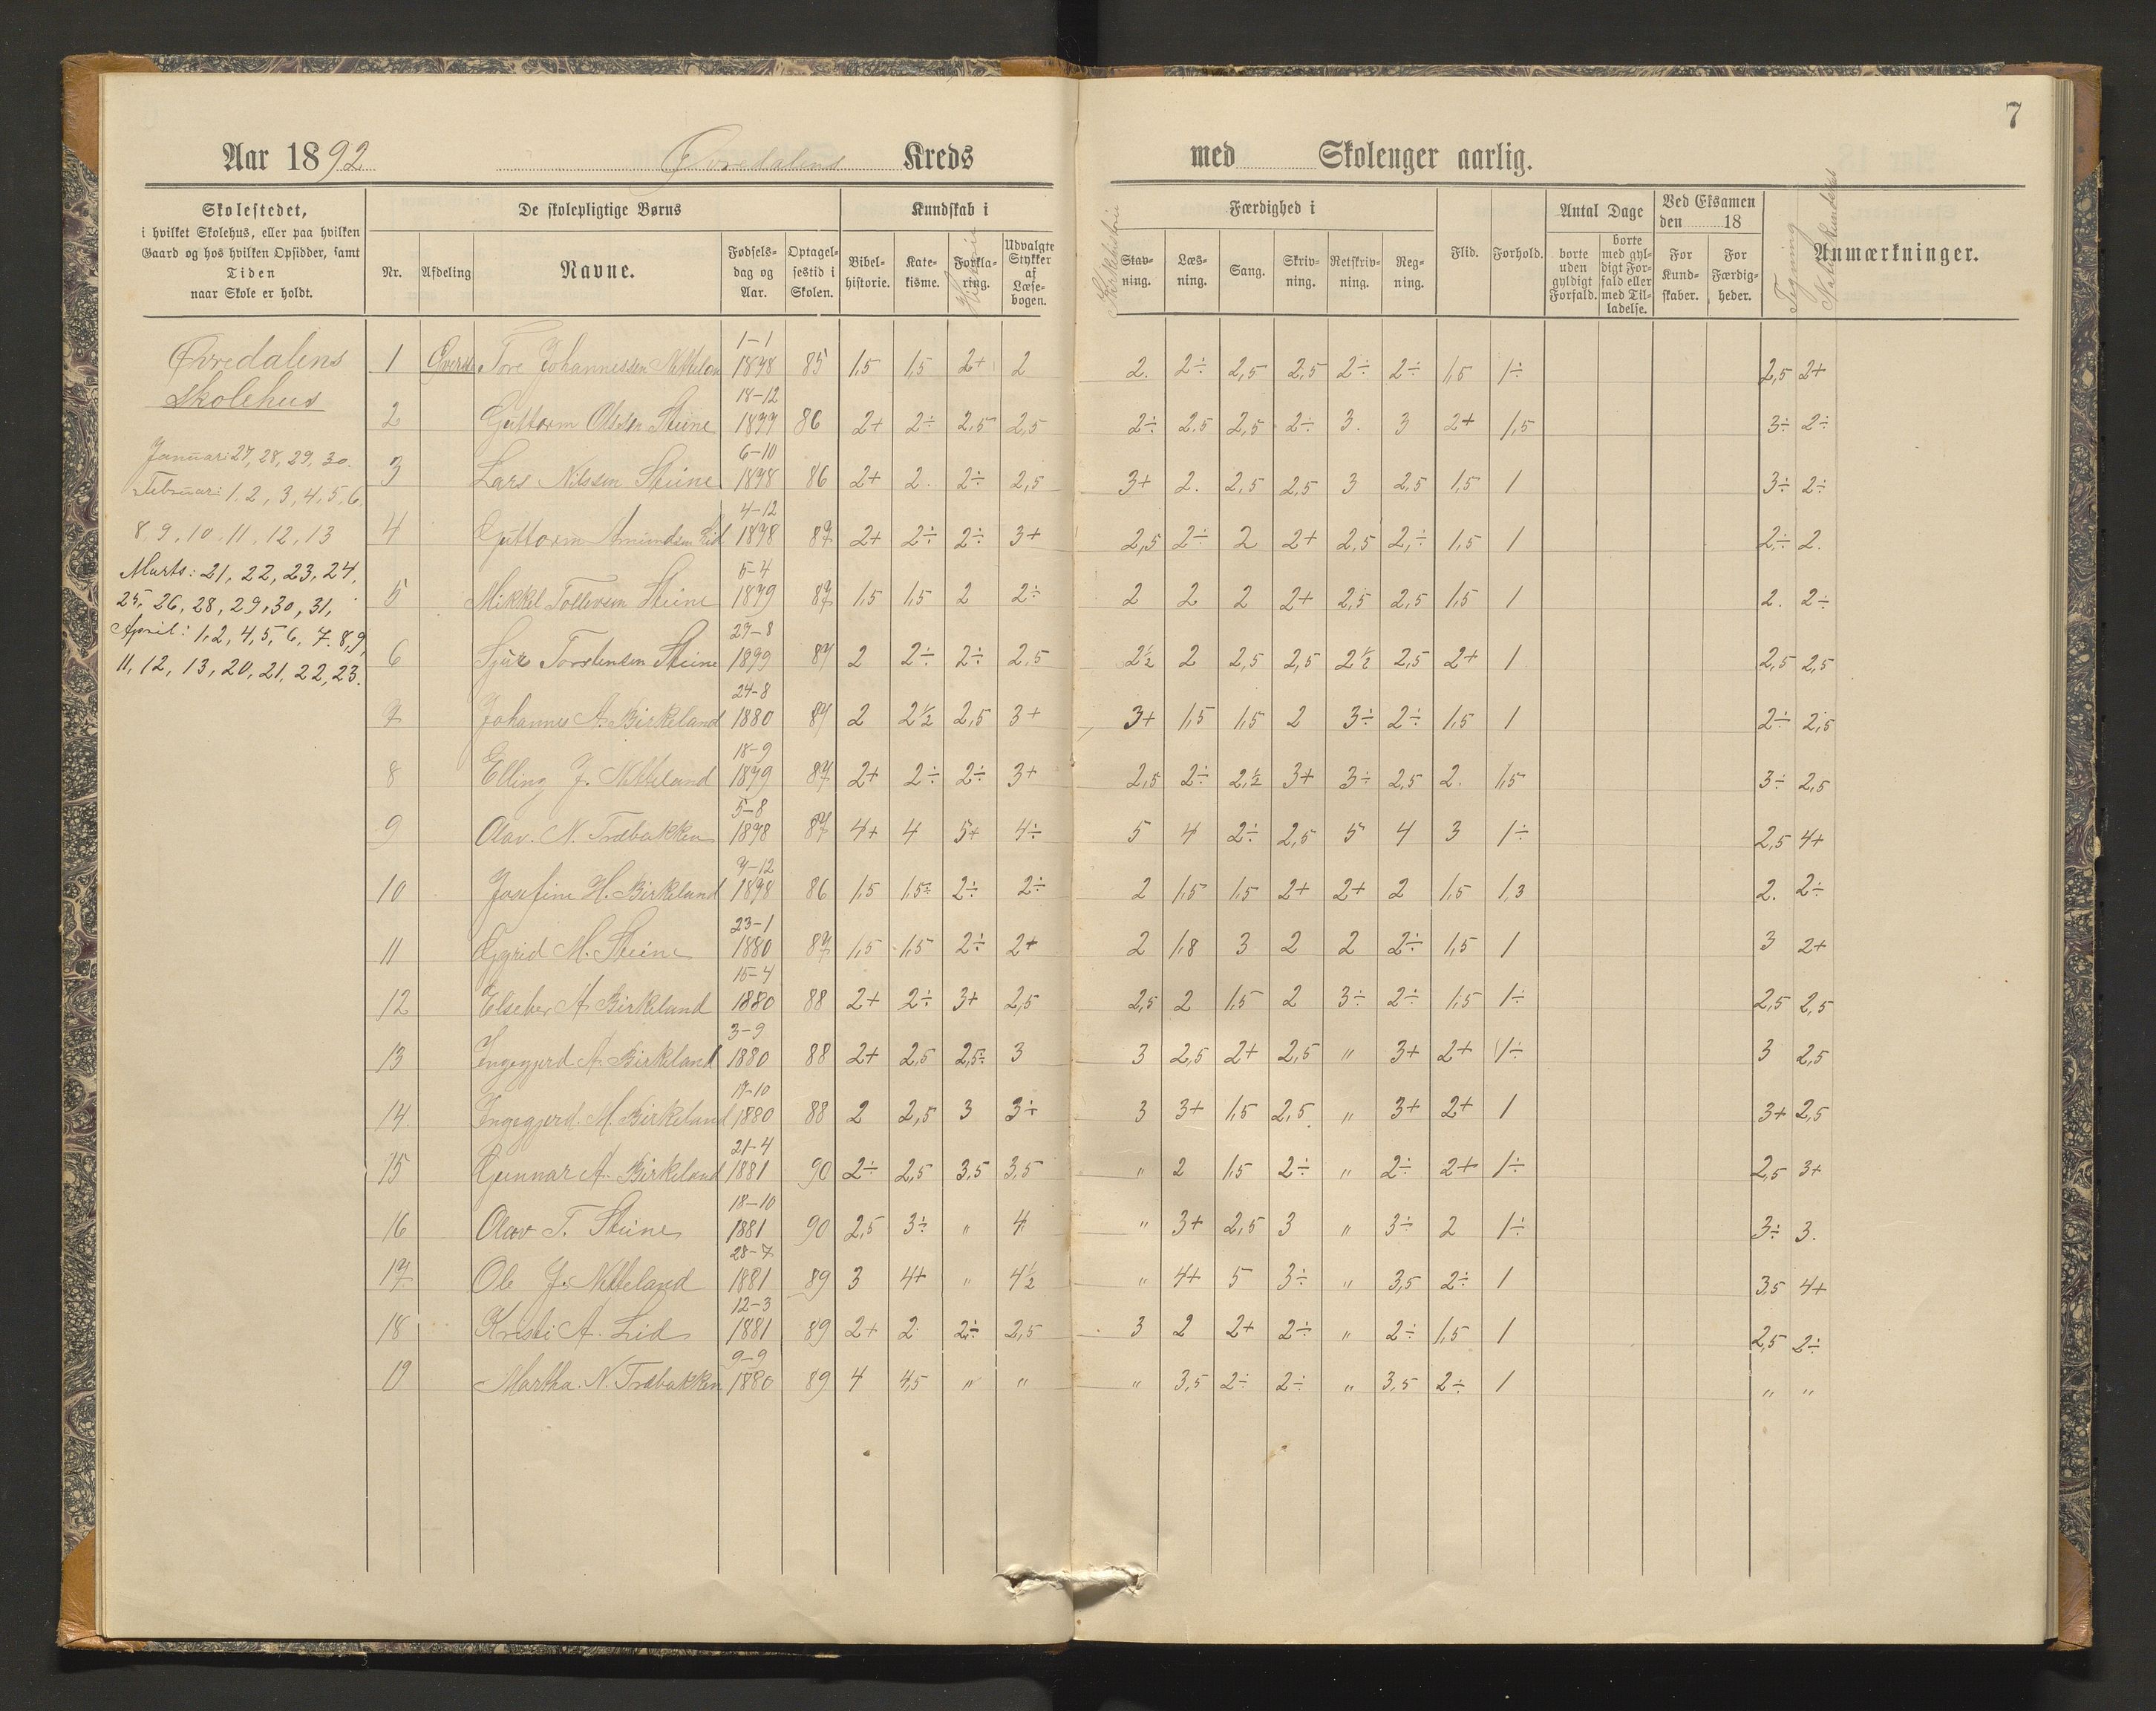 7
Aar 1892 Øvredalens Kreds med Skoleuger aarlig.
Skolestedet,
i hvilket Skolehus, eller paa hvilken
Gaard og hos hvilken Opsidder, samt
Tiden
naar Skole er holdt.
De skolepligtige Børns
Nr. Afdeling Navne. Fødsels-dag og Aar. Optagelsestid i Skolen.
Kundskab i
Bibelhistorie. Katekisme. Forklaring. Historie Udvalgte Stykker af Læsebogen.
Færdighed i
Stavning. Læsning. Sang. Skrivning. Retskrivning. Regning.
Flid. Forhold.
Antal Dage
borte uden gyldigt Forfald. borte med gyldigt Forfald eller med Tilladelse.
Ved Eksamen den 18
For Kundskaber. For Færdigheder.
Tegning
Anmærkninger.
Øvredalens
Skolehus
Januar: 27, 28, 29, 30.
Februar: 1, 2, 3, 4, 5, 6,
8, 9, 10, 11, 12, 13
Marts: 21, 22, 23, 24,
25, 26, 28, 29, 30, 31,
April: 1, 2, 4, 5, 6, 7, 8, 9,
11, 12, 13, 20, 21, 22, 23.
1 Tore Johannessen 1-1 1878 85 1,5 1,5 2+ 2 2. 2÷ 2,5 2,5 2÷ 2÷ 1,5 1÷ 2,5 2+
2 Guttorm Olssen Steine 18-12 1877 86 2+ 2÷ 2,5 2,5 2÷ 2.5 2,5 2÷ 3. 3 2+ 1,5 3÷ 2÷
3 Lars Nilssen Steine 6-10 1878 86 2+ 2. 2÷ 2,5 3+ 2. 2,5 2,5 3 2,5 1,5 1 3÷ 2÷
4 Guttorm Amundsen Lid 4-12 1878 87 2+ 2÷ 2÷ 3+ 2,5 2÷ 2 2+ 2,5 2÷ 1,5 1 2÷ 2.
5 Mikkel Tollevsen Steine 5-4 1879 87 1,5 1,5 2 2÷ 2 2 2 2+ 2,5 2,5 1,5 1 2. 2÷
6 Sjur Torstensen Steine 27-8 1879 87 2 2÷ 2÷ 2,5 2½ 2 2,5 2,5 2½ 2,5 2+ 1 2,5 2,5
7 Johannes A. Birkeland 24-8 1880 87 2 2½ 2,5 3+ 3+ 1,5 1,5 2 3÷ 2÷ 1,5 1 2÷ 2,5
8 Elling J. Nitteland 18-9 1879 87 2+ 2÷ 2÷ 3+ 2,5 2÷ 2,½ 3+ 3÷ 2,5 2. 1,5 3÷ 2,5
9 Olav. N. Træbakken 5-8 1878 87 4+ 4 5+ 4÷ 5 4 2÷ 2,5 5 4 3 1÷ 2,5 4+
10 Josefine H. Birkeland 7-12 1878 86 1,5 1,5÷ 2÷ 2÷ 2 1,5 1,5 2+ 2+ 2 1,5 1,3 2. 2÷
11 M. Steine 23-1 1880 87 1,5 1,5 2÷ 2+ 2 1,8 3 2 2 2÷ 1,5 1 3 2+
12 A. Birkeland 15-4 1880 88 2+ 2÷ 3+ 2,5 2,5 2 1,5 2 3÷ 2÷ 1,5 1÷ 2,5 2,5
13 Ingegjerd A. Birkeland 3-9 1880 88 2+ 2,5 2,5÷ 3 3 2,5 2+ 2,5 " 3+ 2+ 1÷ 3 2,5
14 Ingegjerd. M. Birkeland 17-10 1880 88 2 2,5 3 3÷ 3 3+ 1,5 2,5 " 3+ 2+ 1 3+ 2,5
15 Gunnar A. Birkeland 21-4 1881 90 2÷ 2,5 3,5 3,5 " 2 1,5 2÷ " 2÷ 2+ 1÷ 2,5 3+
16 Olav T. Steine 18-10 1881 90 2,5 3÷ " 4 " 3+ 2,5 3 " 3÷ 2 1÷ 3÷ 3.
17 Ole J. Nitteland 28-7 1881 89 3 4+ " 4½ " 4+ 5 3÷ " 3,5 2÷ 1 3,5 4+
18 Kristi A. Lid 12-3 1881 89 2+ 2 2÷ 2,5 3 2 2+ 2÷ " 2÷ 1,5 1 2,5 2÷
19 Martha. N. Træbakken 9-9 1880 89 4 4,5 " " " 3,5 2÷ 2÷ " 3,5 2÷ 1 " "